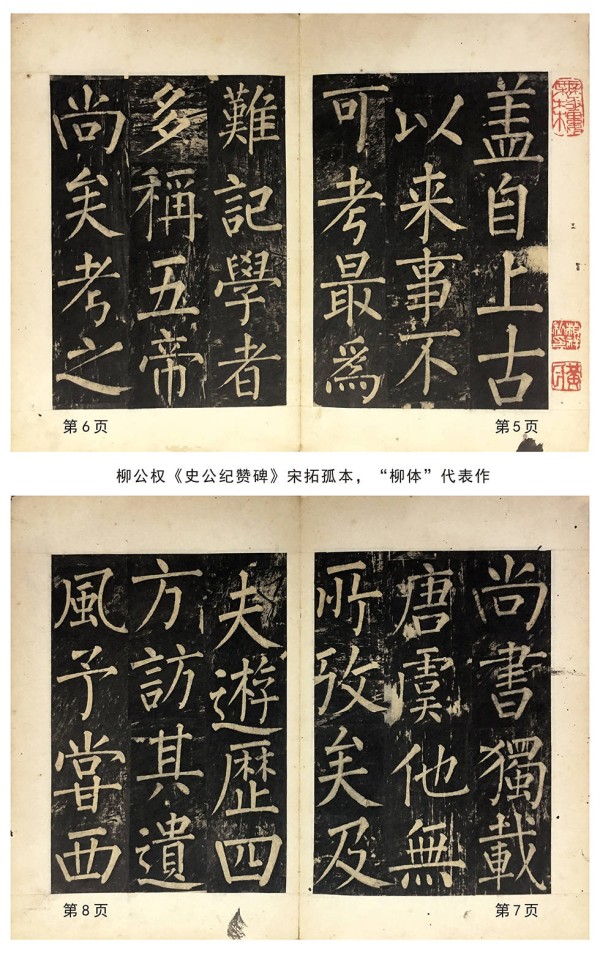 盖自上古
以来事不
可考最爲
難記學者
多稱五帝
尚矣考之
第5页
第6页
柳公权《史公纪赞碑》宋拓孤本，“柳体”代表作
尚書獨載
唐虞他無
所攷矣及
夫遊歷四
方訪其遺
風予嘗西
第7页
第8页